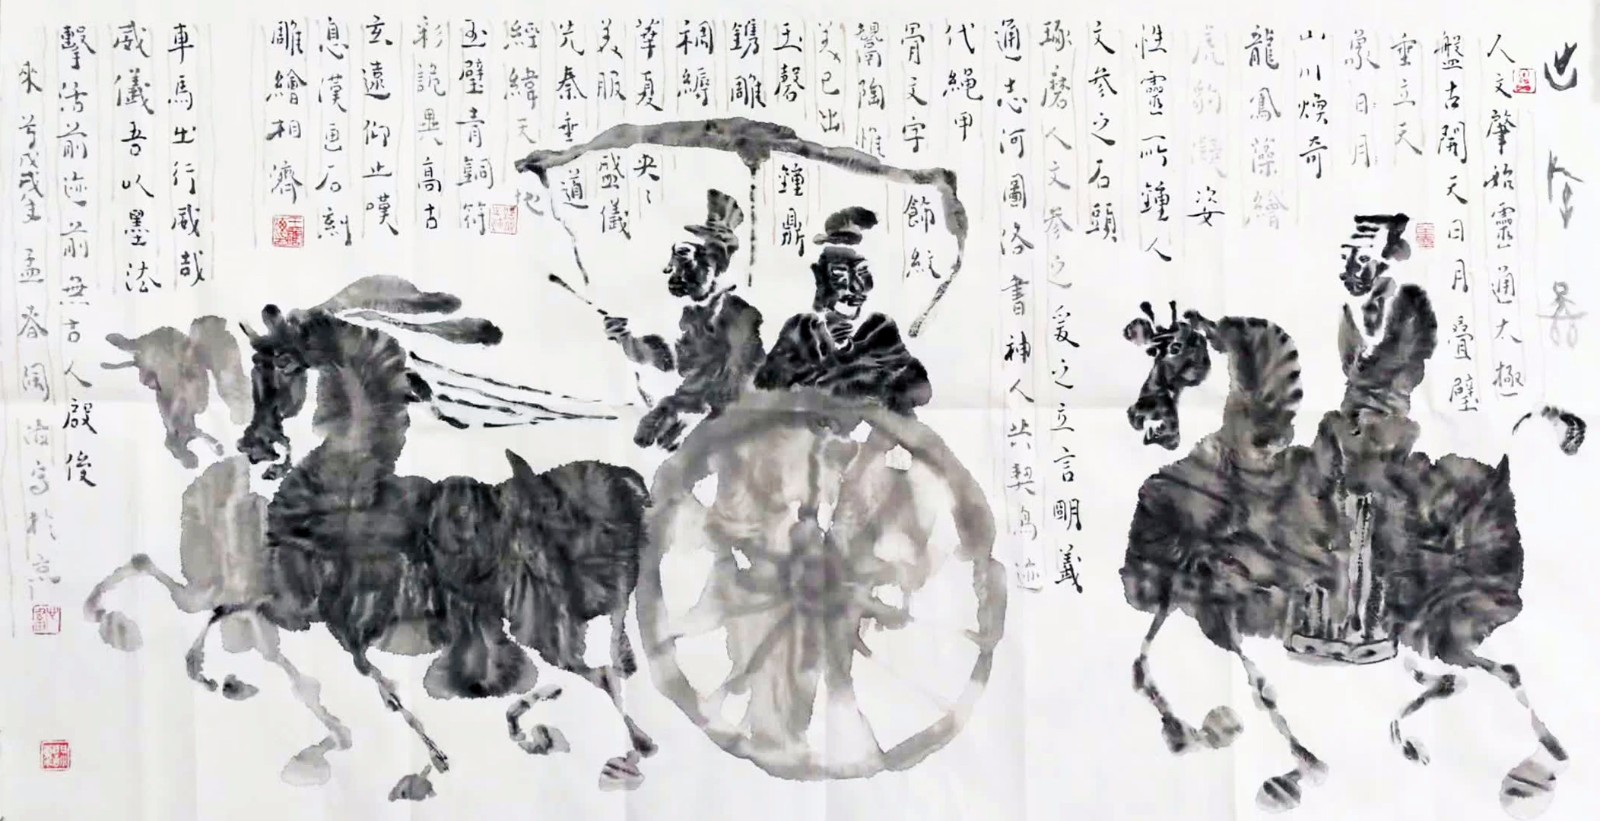 人文肇始靈通太極
盤古開天日月疊璧
垂立天
象日月
山川煥奇
龍鳳藻繪
虎豹凝姿
性靈所鍾人
文參之石頭
琢磨人文參之爰之立言明義
通志河圖洛書神人共契鳥迹
代繩甲
骨文字飾紋
陶惟
美已出
玉磬鐘鼎
鐫雕
稠縟
華夏央々
美服盛儀
先秦垂道
經緯天地
玉璧青銅符
彩詭異高古
玄遠仰止嘆
息漢畫石刻
雕繪相濟
車馬出行威哉
威儀吾以墨法
擊活前迹前無古人啟後
來者戊戌年孟春閩寫於京